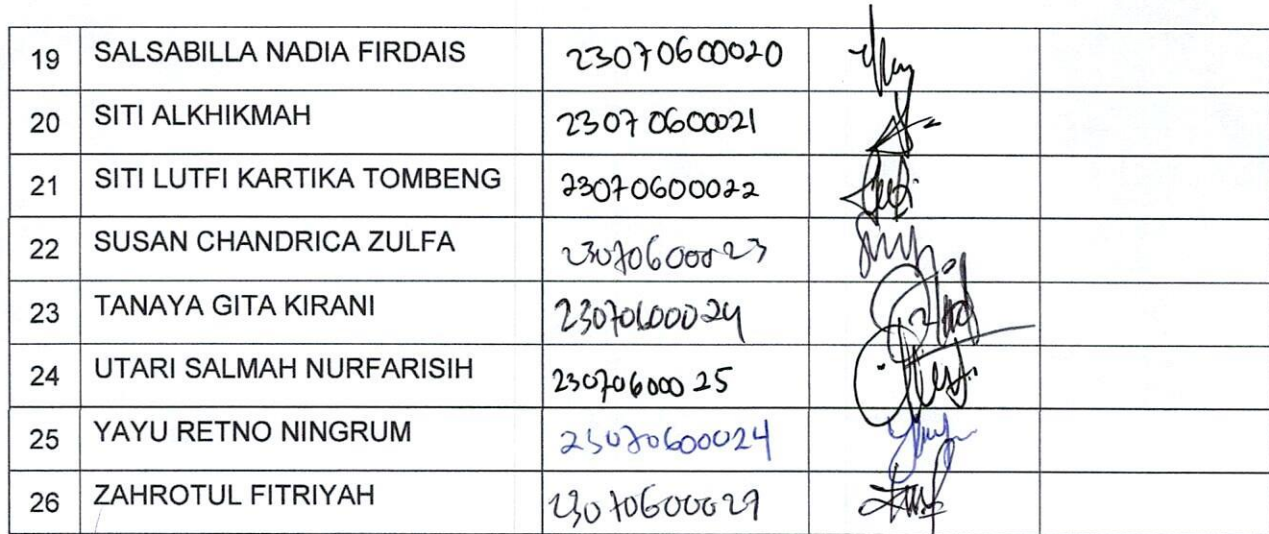 19 SALSABILLA NADIA FIRDAIS 23070600020
20 SITI ALKHIKMAH 23070600021
21 SITI LUTFI KARTIKA TOMBENG 23070600022
22 SUSAN CHANDRICA ZULFA 23070600023
23 TANAYA GITA KIRANI 23070600024
24 UTARI SALMAH NURFARISIH 23070600025
25 YAYU RETNO NINGRUM 23070600024
26 ZAHROTUL FITRIYAH 23070600029